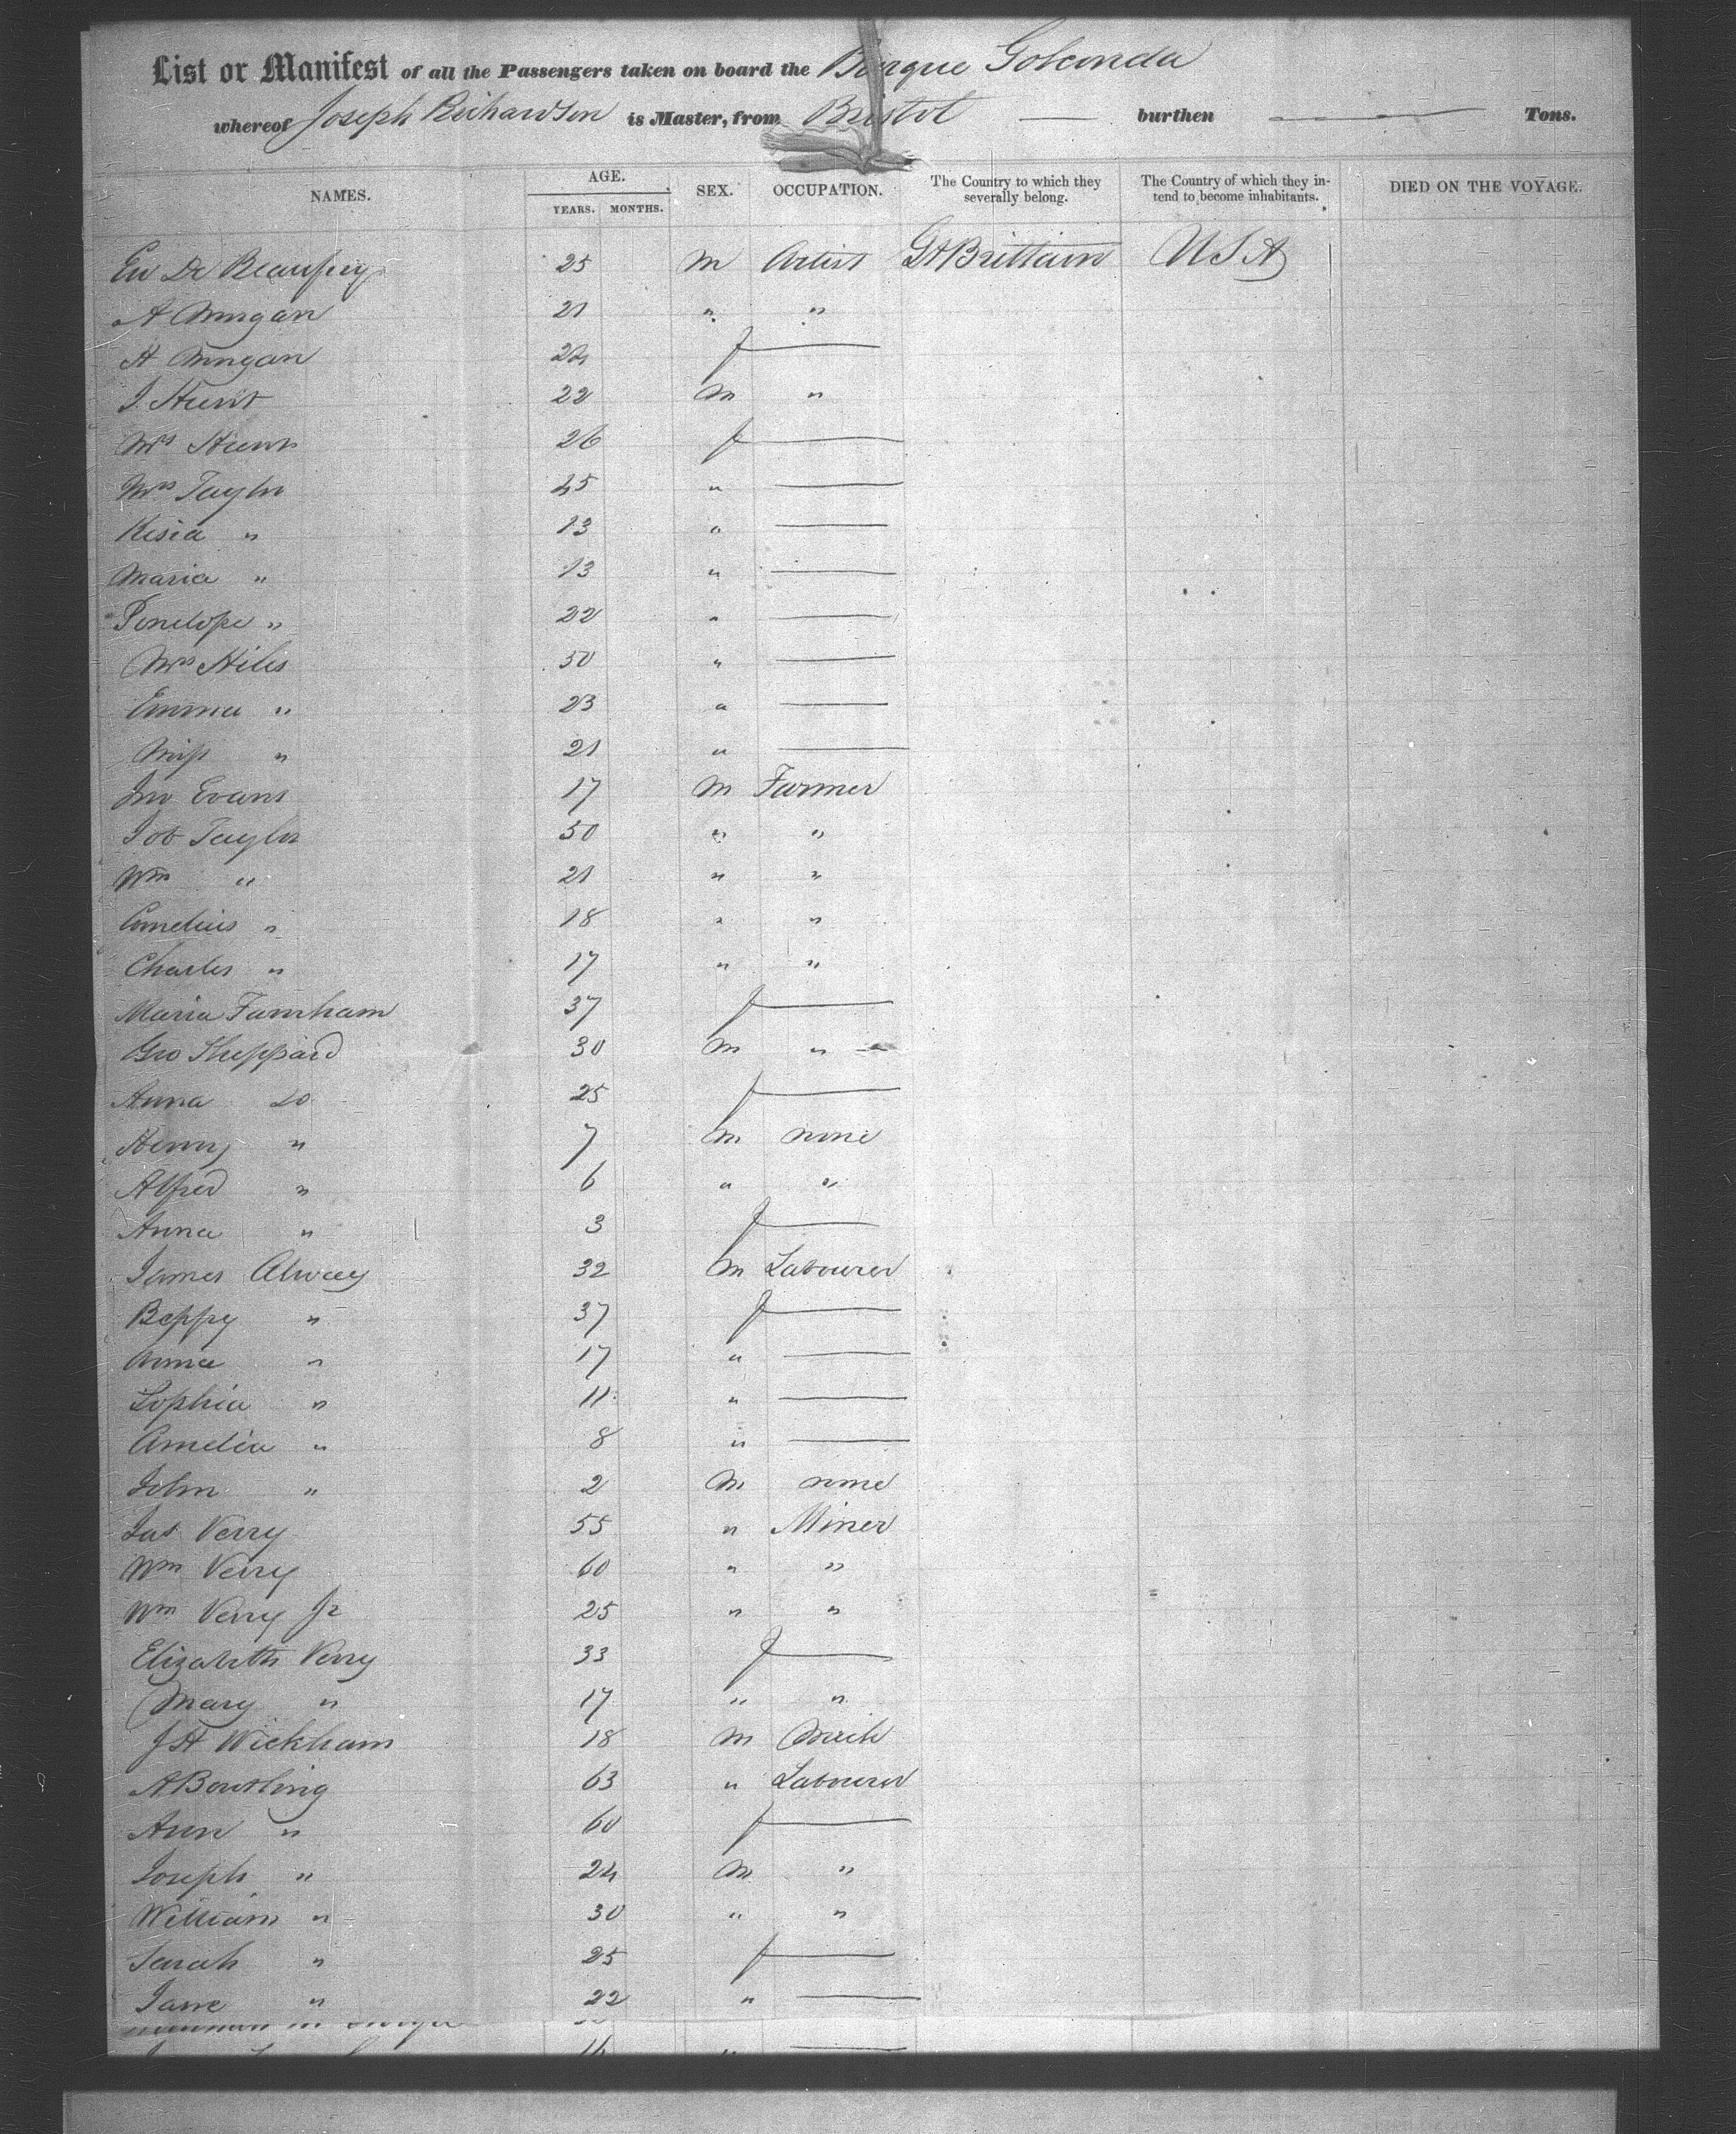 List or Manifest of all the Passengers taken on board the Barque Golconda
whereof Joseph Richardson is Master, from Bristol — burthen — Tons.
NAMES. AGE. YEARS. MONTHS. SEX. OCCUPATION. The Country to which they severally belong. The Country of which they intend to become inhabitants. DIED ON THE VOYAGE.
De 25 m Artist Gt Brittain U S A
A 21 " "
A 24 f —
J. Hunt 22 m "
Mrs Hunt 26 f —
Mrs Taylor 45 " —
Kesia " 13 " —
Maria " 13 " —
Penelope " 22 " —
Mrs Hiles 50 " —
Emma " 23 " —
Miss " 21 " —
Jno Evans 17 m Farmer
Job Taylor 50 " "
Wm " 21 " "
Cornelius " 18 " "
Charles " 17 " "
Maria Farnham 37 f —
Geo Sheppard 30 m " —
Anna Do 25 f —
Henry " 7 m none
Alfred " 6 " "
Anna " 3 f —
James Alway 32 m Labourer
Beppy " 37 f —
Anna " 17 " —
Sophia " 11 " —
Amelia " 8 " —
John " 2 m none
Jas Verry 55 " Miner
Wm Verry 60 " "
Wm Verry Jr 25 " "
Elizabeth Verry 33 f —
Mary " 17 " "
J H Wickham 18 m
A Bowsling 63 " Labourer
Ann " 60 f —
Joseph " 24 m "
William " 30 " "
Sarah " 25 f —
Jane " 22 " —
16 " —